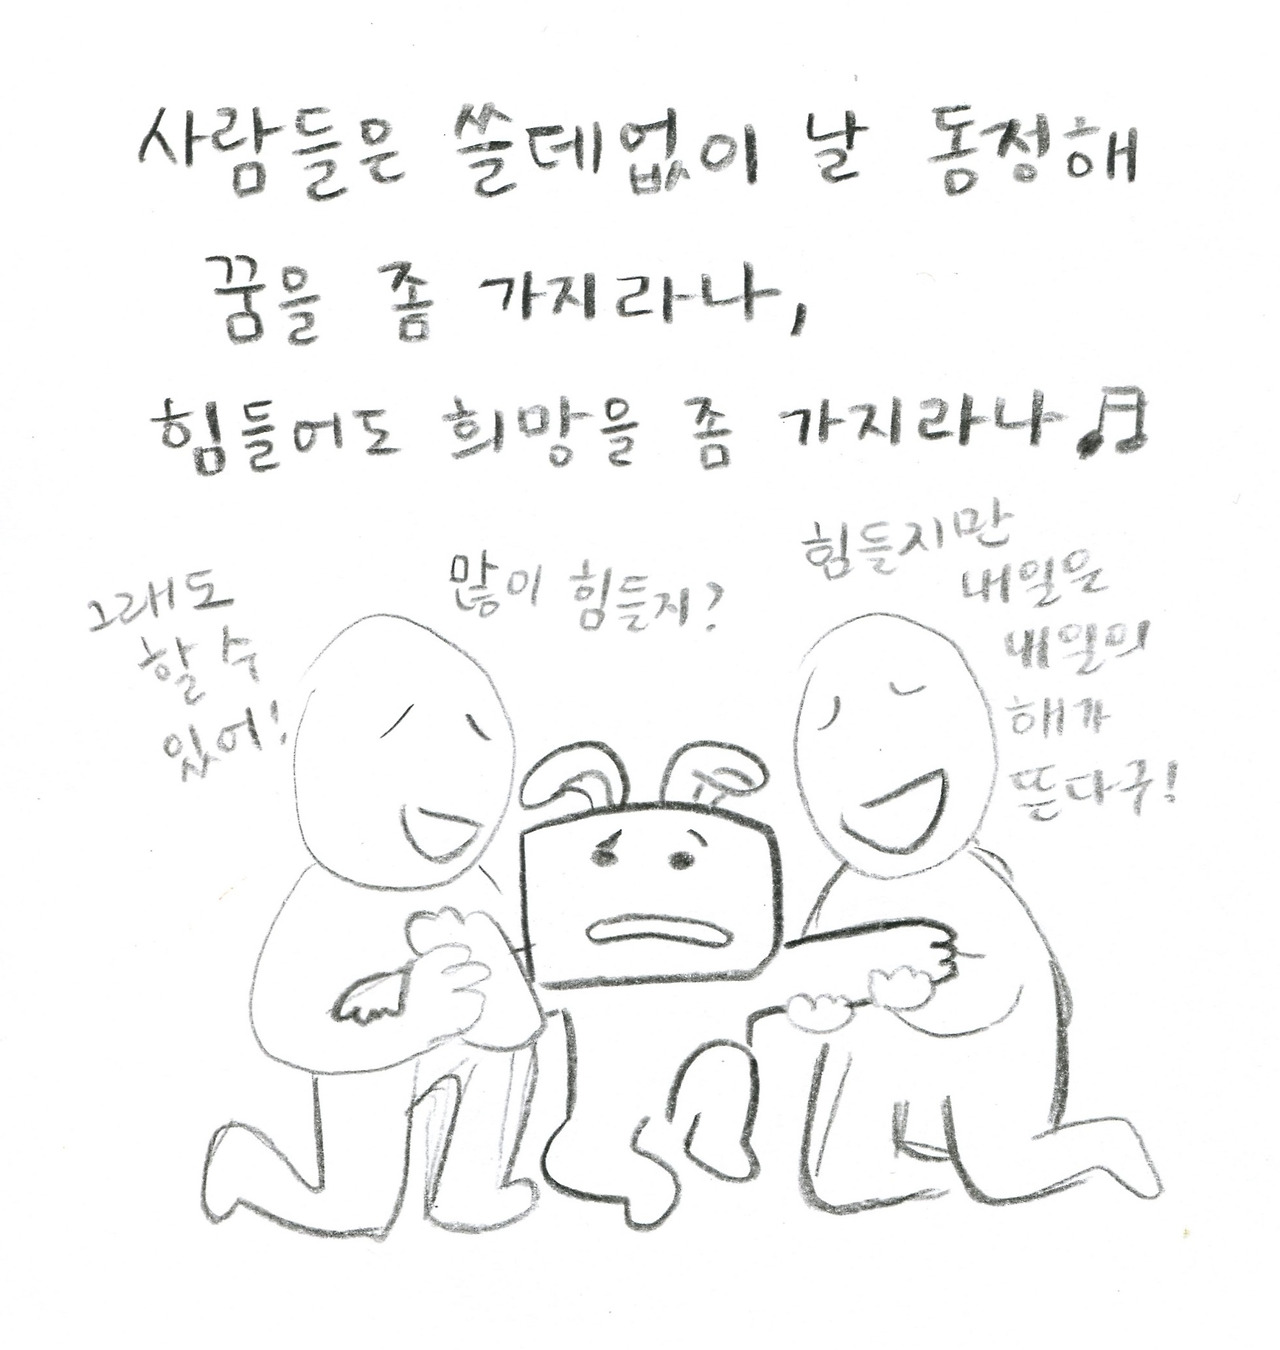 사람들은 쓸데없이 날 동정해
꿈을 좀 가지라나,
힘들어도 희망을 좀 가지라나
그래도
할 수
있어!
많이 힘들지?
힘들지만
내일은
내일의
해가
뜬다구!